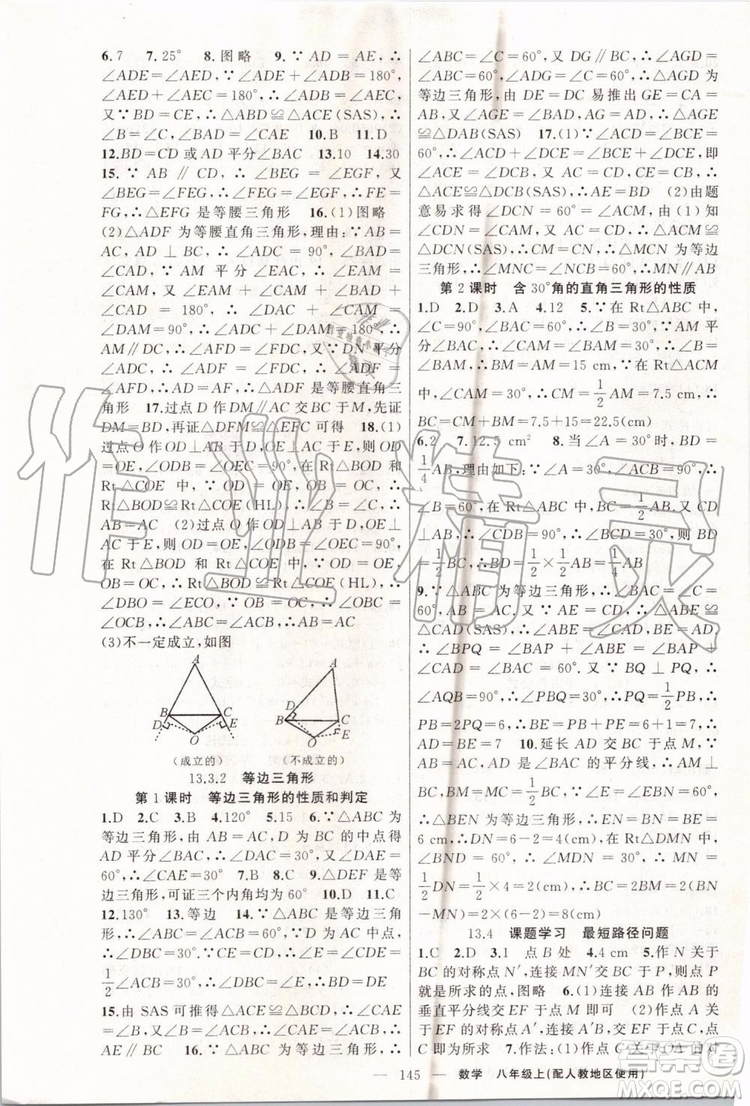 6.7 7.25° 8.图略 9.∵AD=AE,∴
∠ADE=∠AED,∵∠ADE+∠ADB=180°,
∠AED+∠AEC=180°,∴∠ADB=∠AEC,
又∵BD=CE,∴△ABD≌△ACE(SAS),∴
∠B=∠C,∴∠B=∠CAE 10.B 11.D
12.BD=CD或AD平分∠BAC 13.10 14.30
15.∵AB∥CD,∴∠BEG=∠EGF,又
∠BEG=∠FEG,∴∠FEG=∠EGF,∴FE=
FG,∴△EFG是等腰三角形 16.(1)图略
(2)△ADF为等腰直角三角形,理由:∵AB=
AC,AD⊥BC,∴∠ADC=90°,∠BAD=
∠CAD,∵AM平分∠EAC,∴∠EAM=
∠CAM,∴∠CAM+∠CAD=90°,即
∠DAM=90°,∴∠DAM=∠ADC=90°,∴
AM∥BC,∴∠AFD=∠FDC,又∵DN平分
∠ADC,∴∠ADF=∠FDC,∴∠ADF=
∠AFD,∴AD=AF,∴△ADF是等腰直角三
角形 17.过点D作DM∥AC交BC于M,先证
DM=BD,再证△DFM≌△EFC可得 18.(1)
过点O作OD⊥AB于D,OE⊥AC于E,则
OD=OE,∠ODB=∠OEC=90°,∵OB=OC,
∴Rt△OBD≌Rt△OCE(HL),∴∠B=∠C,∴
AB=AC (2)过点O作OD⊥AB于D,OE⊥
AC于E,则OD=OE,∠ODB=∠OEC=90°,
在Rt△BOD和Rt△COE中,OD=OE,OB=
OC,∴Rt△BOD≌Rt△COE(HL),∴
∠DBO=∠ECO,∵OB=OC,∴∠OBC=
∠OCB,∴∠ABC=∠ACB,∴AB=AC
(3)不一定成立,如图
A
B C
D E
O
(成立的)
A
B C
D E
O
(不成立的)
13.3.2 等边三角形
第1课时 等边三角形的性质和判定
1.D 2.C 3.B 4.120° 5.15 6.∵△ABC为
等边三角形,由AB=AC,D为BC的中点得
AD平分∠BAC,∴∠DAC=30°,又∠DAE=
60°,∴∠CAE=30° 7.B 8.C 9.△DEF是等
边三角形,可证三个内角均为60° 10.D 11.C
12.130° 13.9 14.∵△ABC是等边三角形,
BD⊥AC,∴∠ACB=60°,∠DBC=30°,DC=
1/2AC=CE,∴∠CDE=∠E,又∠CDE+∠E=
∠ACB=60°,∴∠E=30°=∠DBC,∴BD=DE
15.由SAS可推得△DBC≌△EAC,∴∠CAE=
∠B=60°,又∵∠ACB=60°,∴∠CAE=
∠ACB,∴AE∥BC 16.∵△ABC是等边三角形,∴
∠ABC=∠C=60°,又DG∥BC,∴∠AGD=
∠C=60°,∠ADG=∠ABC=60°,∴△ADG为
等边三角形,由DE=DC易推出GE=CA=
AB,又∠AGE=∠DAB=60°,AG=AD,∴△AGE
≌△DAB(SAS) 17.(1)∵∠ACD=∠BCE,
∴∠ACD+∠DCE=∠BCE+∠DCE,即
∠ACE=∠DCB,又AC=DC,CE=CB,
∴△ACE≌△DCB,∴AE=BD (2)由题
意易求得∠DCN=60°=∠ACM,由(1)知
∠CDN=∠CAM,又DC=AC,∴△ACM≌
△DCN(SAS),∴CM=CN,∴△MCN为等边
三角形,∴∠MNC=∠NCB=60°,∴MN∥AB
第2课时 含30°角的直角三角形的性质
1.D 2.D 3.A 4.12 5.∵在Rt△ABC中,
∠B=30°,∴∠CAB=60°,∵AM平分∠CAB,∴
∠CAM=30°,∴CM=1/2AM=1/2×15=7.5,∴
BC=CM+BM=7.5+15=22.5(cm)
6.2 7.12.5 cm² 8.当∠A=30°时,BD=
1/4AB,理由如下:∵∠ACB=90°,∠A=30°,∴
∠B=60°,在Rt△ABC中,BC=1/2AB,又CD
⊥AB,∴∠CDB=90°,∴∠BCD=30°,∴在
Rt△BCD中,BD=1/2BC=1/2×1/2AB=1/4AB
9.∵△ABC为等边三角形,∴AB=AC,
∠BAC=∠C=60°,又AE=CD,∴△ABE≌
△CAD(SAS),∴∠ABE=∠CAD,BE=AD,∴
∠BPQ=∠BAP+∠ABE=∠BAP+
∠CAD=∠BAE=60°,又∵BQ⊥PQ,∴
∠AQB=90°,∴∠PBQ=30°,∴PQ=1/2PB,∴
PB=2PQ=6,∴BE=PB+PE=6+1=7,∴
AD=BE=7 10.延长AD交BC于点M,由
AB=AC,AD是∠BAC的平分线,可得
AM⊥BC,BM=MC=1/2BC,延长ED交BC于点
N,△BEN为等边三角形,∴EN=BN=BE=
6 cm,∴DN=6-2=4(cm),在Rt△DMN中,
∵∠DNM=60°,∴∠NDM=30°,∴NM=
1/2DN=2 cm,∴BM=4 cm,∴BC=2BM=2(BN-
MN)=2×(6-2)=8(cm)
13.4 课题学习 最短路径问题
1.C 2.D 3.1 点B处 4.4 cm 5.作N关于
BC的对称点N′,连接MN′交BC于点P,点P
就是所求的点,图略 6.(1)连接AB,作AB的
垂直平分线交EF于点M即可 (2)作点A关
于EF的对称点A′,连接A′B交EF于点N即
可 7.作法:(1)作点C关于
— 145 — 数学 八年级上(配人教地区使用)
作业精灵
答案圈
MXQE.COM